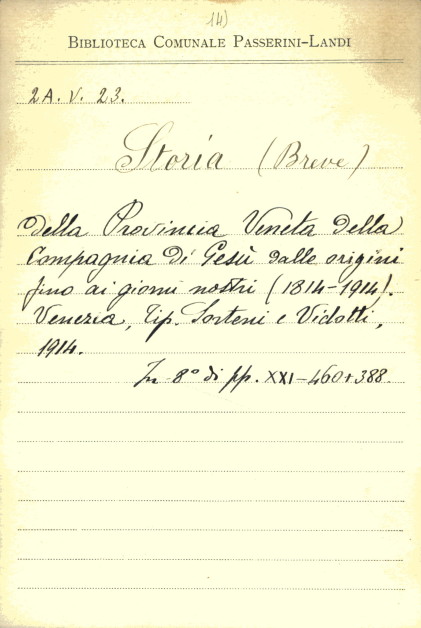 14)
BIBLIOTECA COMUNALE PASSERINI-LANDI
2A. V. 23.
Storia (Breve)
della Provincia Veneta della
Compagnia di Gesù dalle origini
fino ai giorni nostri (1814-1914).
Venezia, Tip. Sorteni e Vidotti,
1914.
In 8° di pp. XXI-460+388.